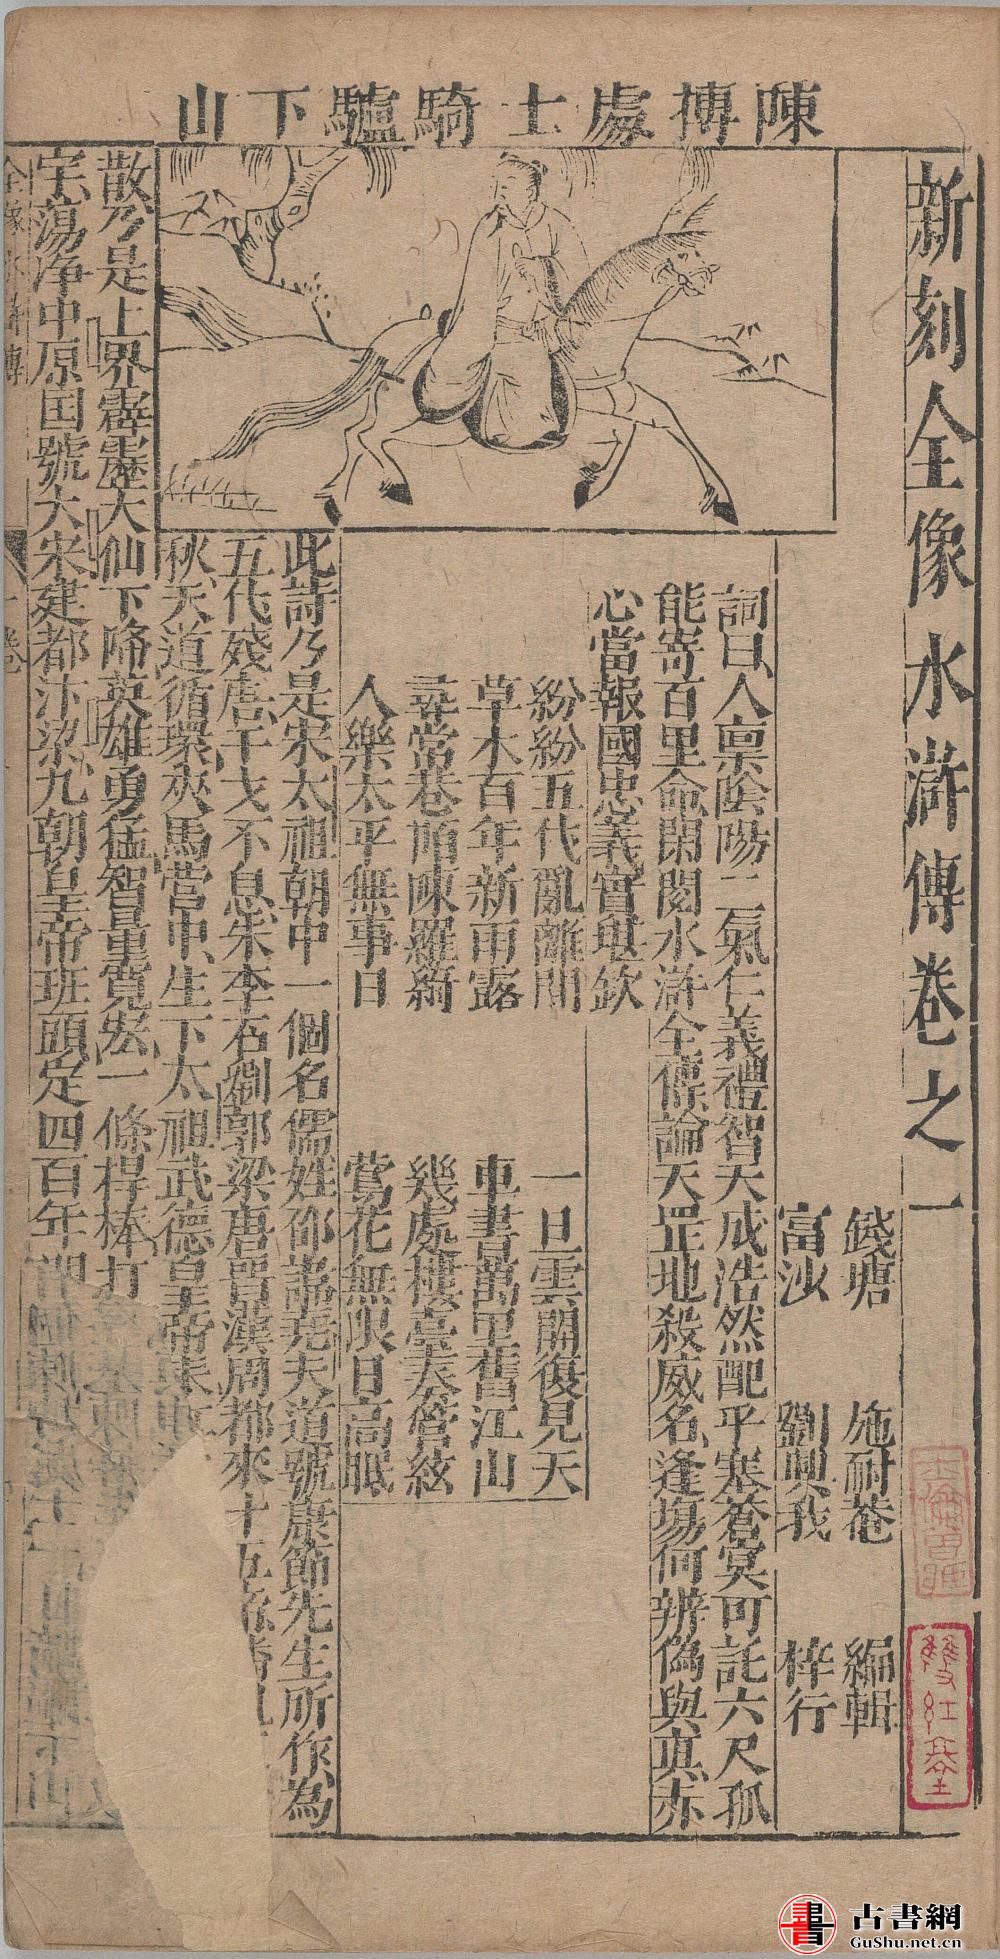 陳摶處士騎驢下山
新刻全像水滸傳卷之一
錢塘 施耐菴 編輯
富沙 劉興我 梓行
詞曰、人禀陰陽二氣仁義禮智天成浩然配乎塞蒼冥可託六尺孤
能寄百里命閑閱水滸全傳論天罡地殺威名逢場何辨偽與真赤
心當報國忠義實堪欽
紛紛五代亂離間 一旦雲開復見天
草木百年新雨露 車書萬里舊江山
尋常巷陌陳羅綺 幾處樓臺奏管絃
人樂太平無事日 鶯花無限日高眠
此詩乃是宋太祖朝中一個名儒姓邵諱堯夫道號康節先生所作、為
五代殘唐、干戈不息、朱李石劉郭梁唐晋漢周都來十五
秋、天道循環、夾馬營中、生下太祖武德皇帝來
散乃是上界霹靂大仙下降英雄勇猛智量寬宏一條桿棒打
宇、蕩净中原国號大宋建都汴梁九朝皇帝班頭定四百年
全像水滸傳 一卷
雙紅堂
古書網
GuShu.net.cn